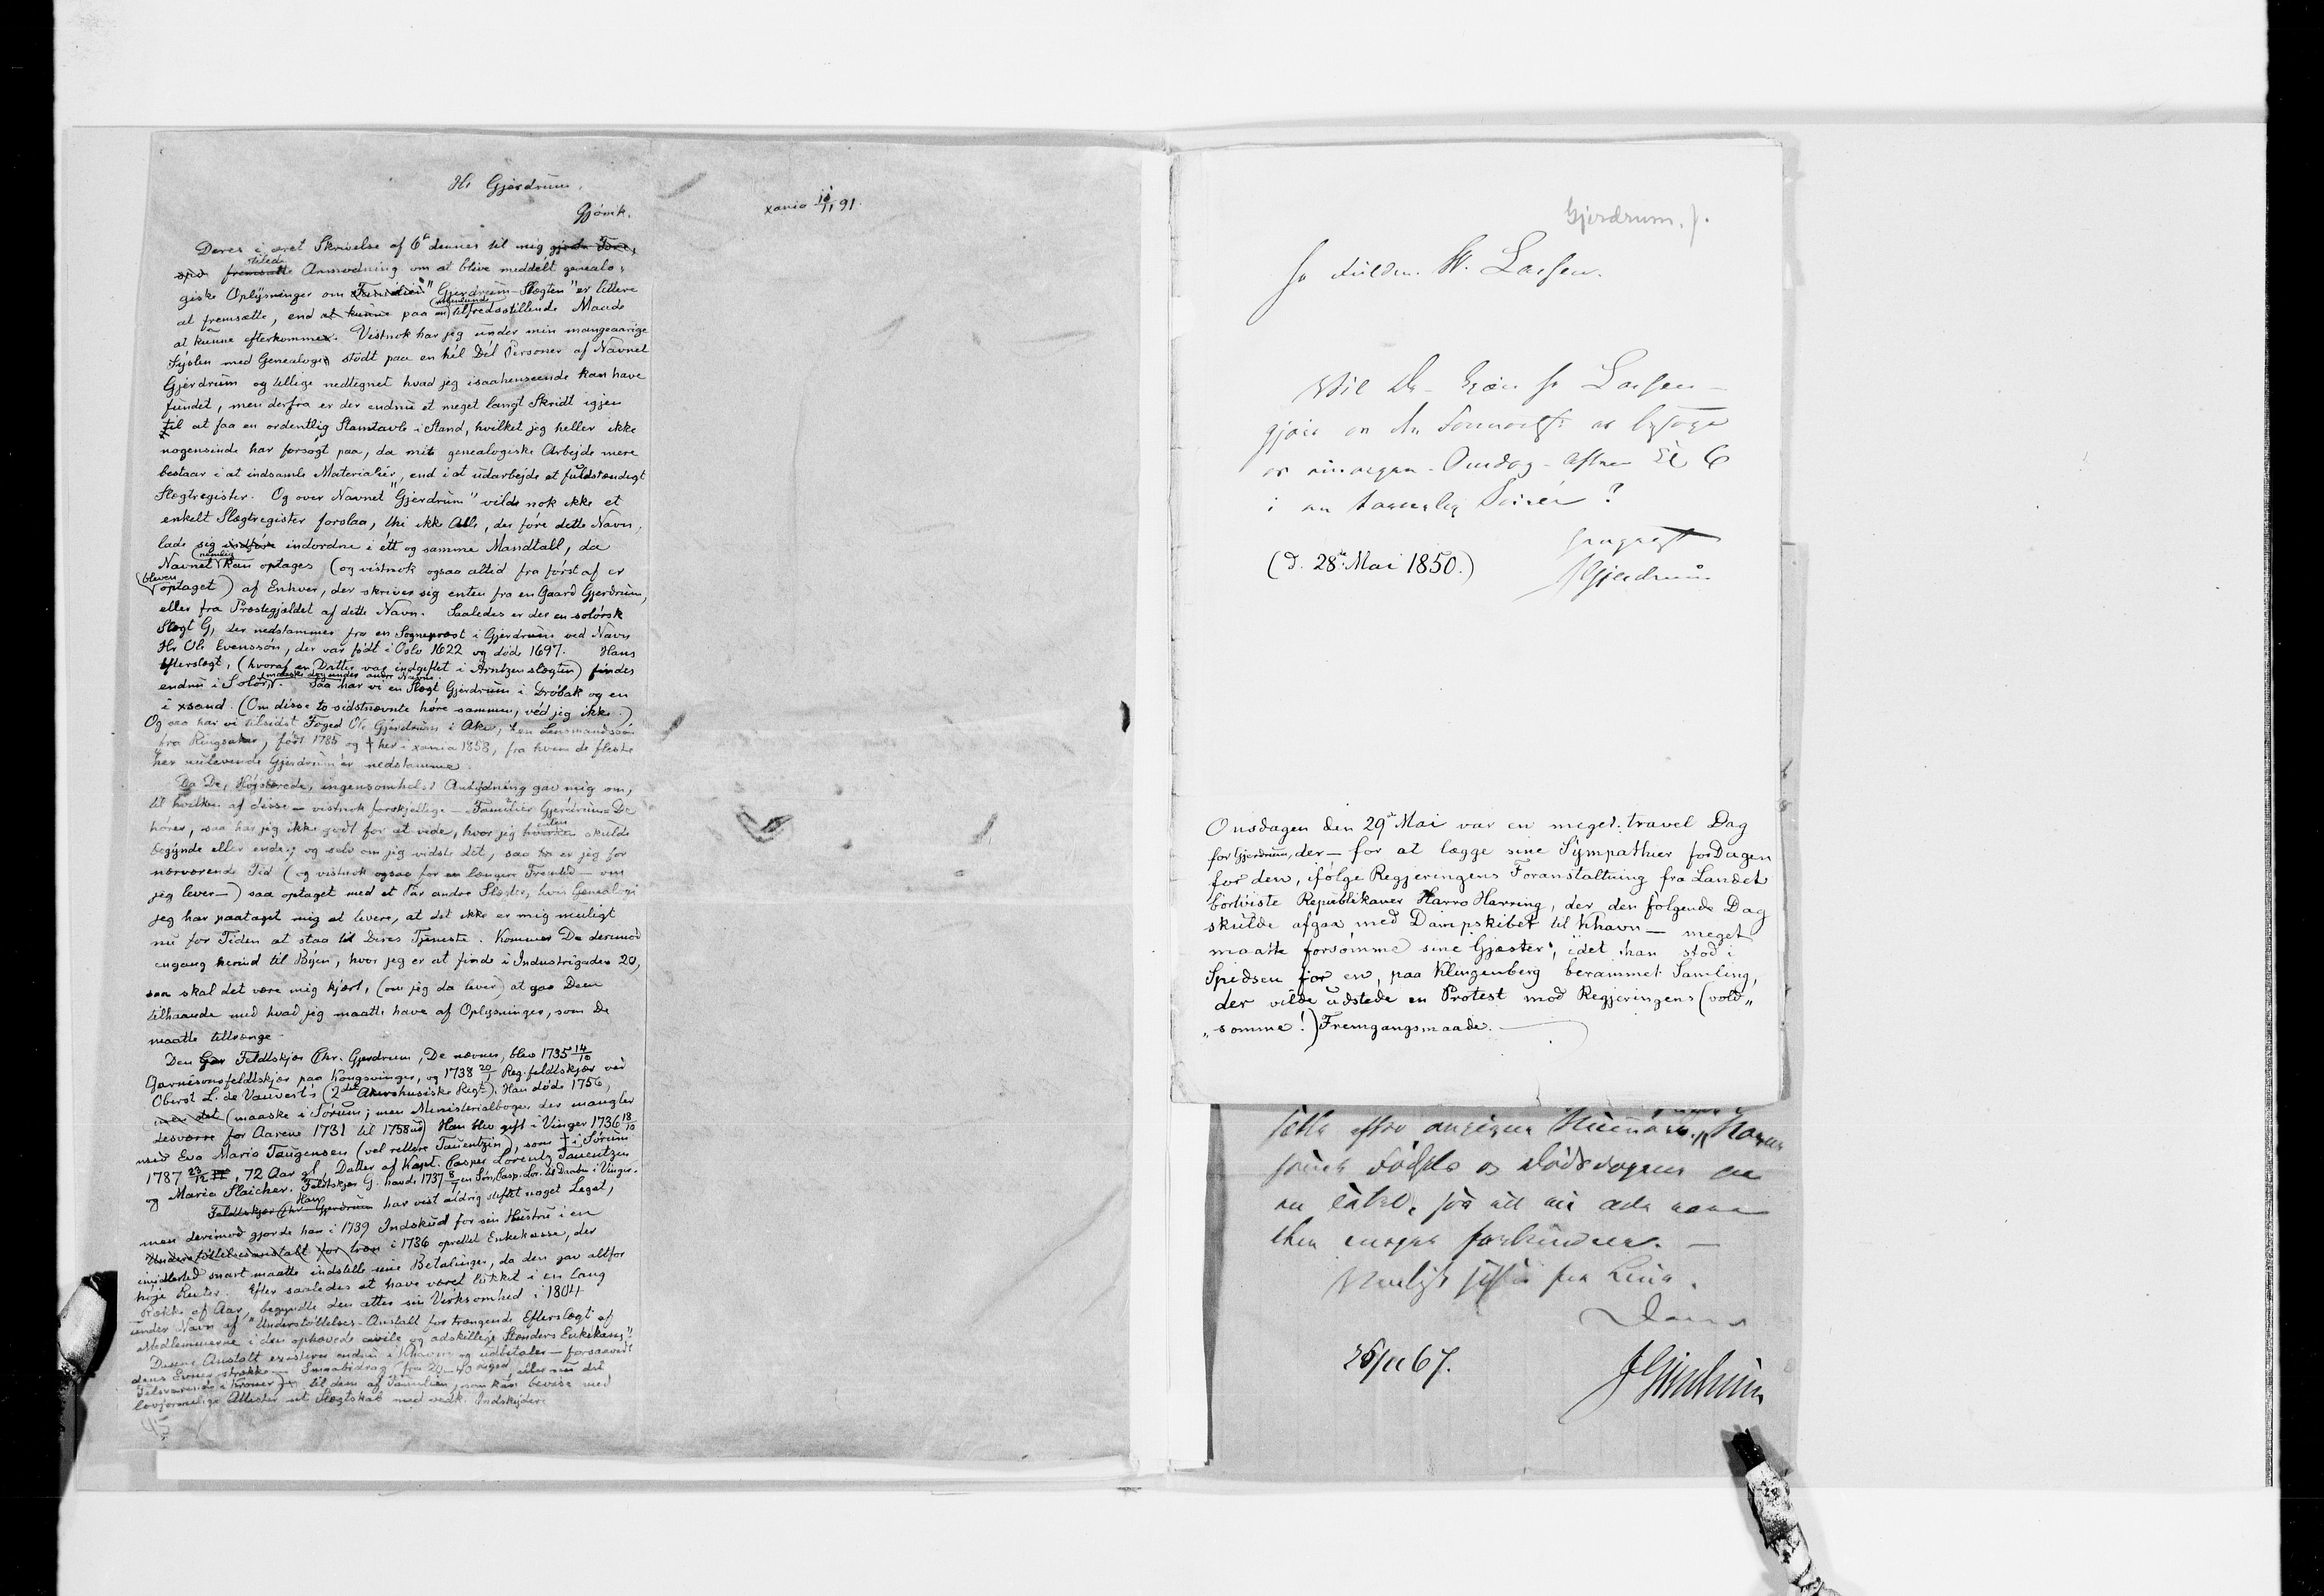 Hr Gjerdrum.
Gjövik.
xania 10/11 91.
Deres i æret Skrivelse af 6te dennes til mig gjorte Fore,
spö fremsatte stilede Anmodning om at blive meddelt genealo,
giske Oplysninger om Familien "Gjerdrum-Slægten" er lettere
at fremsætte, end at kunne paa en nogenlunde tilfredsstillende Maade
at kunne efterkomme. Vistnok har jeg under min mangeaarige
Syslen med Genealogi stödt paa en hel Del Personer af Navnet
Gjerdrum og tillige nedtegnet hvad jeg isaahenseende kan have
fundet, men derfra er der endnu et meget langt Skridt igjen
til at faa en ordentlig Stamtavle i Stand, hvilket jeg heller ikke
nogensinde har forsögt paa, da mit genealogiske Arbejde mere
bestaar i at indsamle Materialier, end i at udarbejde et fuldstændigt
Slægtregister. Og over Navnet "Gjerdrum" vilde nok ikke et
enkelt Slægtregister forslaa, thi ikke Alle, der före dette Navn,
lade sig indföre indordne i étt og samme Mandtall, da
Navnet nemlig kan optages (og vistnok ogsaa altid fra först af er
bleven optaget) af Enhver, der skriver sig enten fra en Gaard Gjerdrum,
eller fra Præstegjældet af dette Navn. Saaledes er der en solörsk
Slægt G, der nedstammer fra en Sognepræst i Gjerdrum ved Navn
Hr Ole Evenssön, der var födt i Oslo 1622 og döde 1697. Hans
Efterslægt, (hvoraf en Datter var indgiftet i Arntzen slægten) findes
endnu i Solör, maaske dog under andre Navne. Saa har vi en Slægt Gjerdrum i Dröbak og en
i xsand. (Om disse to sidstnævnte höre sammen, véd jeg ikke.)
Og saa har vi tilsidst Foged O. Gjerdrum i Aker, en Lensmandssön
fra Ringsaker, födt 1785 og † her i xania 1858, fra hvem de fleste
her nulevende Gjerdrum'er nedstamme.
Da De, Höjstærede, ingensomhelst Antydning gav mig om,
til hvilken af disse – vistnok forskjellige – Familier Gjerdrum De
hörer, saa har jeg ikke godt for at vide, hvor jeg hverken enten skulde
begynde eller ende; og selv om jeg vidste det, saa er jeg for
nærværende Tid (og vistnok ogsaa for en længere Fremtid – om
jeg lever –) saa optaget med et Par andre Slægter, hvis Genealogi
jeg har paataget mig at levere, at det ikke er mig muligt
nu for Tiden at staa til Deres Tjeneste. Kommer De derimod
engang herind til Byen, hvor jeg er at finde i Industrigaden 20,
saa skal det være mig kjært, (om jeg da lever) at gaa Dem
tilhaande med hvad jeg maatte have af Oplysninger, som De
maatte tiltrænge.
Den Gar Feldtskjær Chr. Gjerdrum, De nævner, blev 1735 14/10
Garnisonsfeldtskjær paa Kongsvinger, og 1738 20/1 Reg.feldtskjær ved
Oberst L. de Vauvert's (2det Akershusiske Regt). Han döde 1756,
men det (maaske i Sörum; men Ministerialbogen der mangler
desværre for Aarene 1731 til 1758) Han blev gift i Vinger 1736 18/10
med Eva Maria Taugensen (vel rettere Tauentzin), som † i Sörum
1787 23/12, 72 Aar gl, Datter af Kapt. Casper Lorentz Tauentzien
og Maria Slaicher. Feldtskjær G. havde 1737 8/7 en Sön, Casp. Lor. til Daaben i Vinger.
Feldtskjær Chr. Gjerdrum Han har vist aldrig stiftet noget Legat,
men derimod gjorde han i 1739 Indskud for sin Hustru i en
Understöttelsesanstalt for træn i 1736 oprettet Enkekasse, der
imidlertid snart maatte indstille sine Betalinger, da den gav altfor
höje Renter. Efter saaledes at have været lukket i en lang
Række af Aar, begyndte den atter sin Virksomhed i 1804
under Navn af "Understöttelses-Anstalt for trængende Efterslægt af
Medlemmerne i den ophævede civile og adskillige Stænders Enkekasse".
Denne Anstalt existerer endnu i Khavn og udbetaler – forsaavidt
dens Evner strække – Smaabidrag (fra 20–40 eller nu det
Tilsvarende i Kroner) til dem af Familien, som kan bevise med
lovformelige Attester sit Slægtskab med vedk. Indskyder.
95
Gjerdrum. J.
Hr W. Larsen.
Vil De Hr Larsen –
gjöre os den at besöge
os Onsdag Aften Kl 6
i en Soirée?
(d. 28de Mai 1850.)
Gjerdrum
Onsdagen den 29de Mai var en meget travel Dag
for Gjerdrum, der – for at lægge sine Sympathier for Dagen
for den, ifölge Regjeringens Foranstaltning fra Landet
bortviste Republikaner Harro Harring, der den fölgende Dag
skulde afgaa med Dampskibet til Khavn – meget
maatte forsömme sine Gjæster, idet han stod i
Spidsen for en, paa Klingenberg berammet Samling,
der vilde udstede en Protest mod Regjeringens (vold„
„somme!) Fremgangsmaade.
Födsels og Dödsdagene
Deres
25/11 67.
JGjerdrum